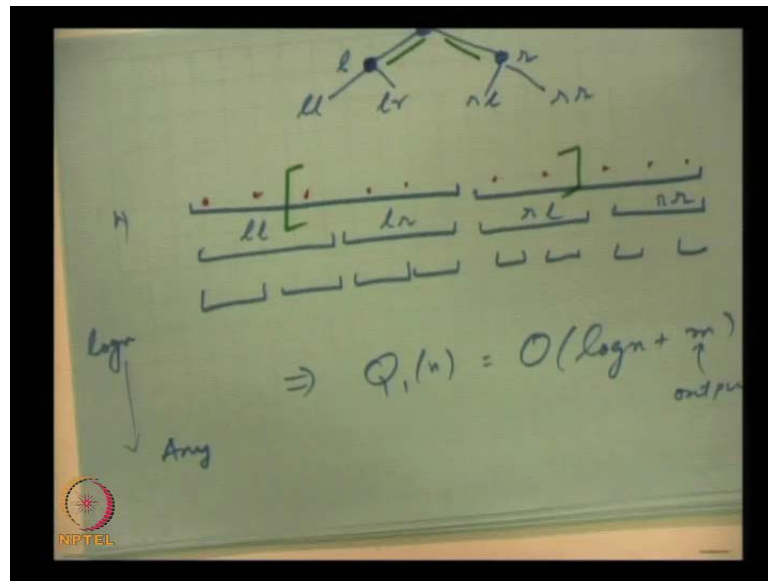 l r
ll lr rl rr
ll lr rl rr
logn
⇒ Q₁(n) = O(logn + m)
Any
NPTEL